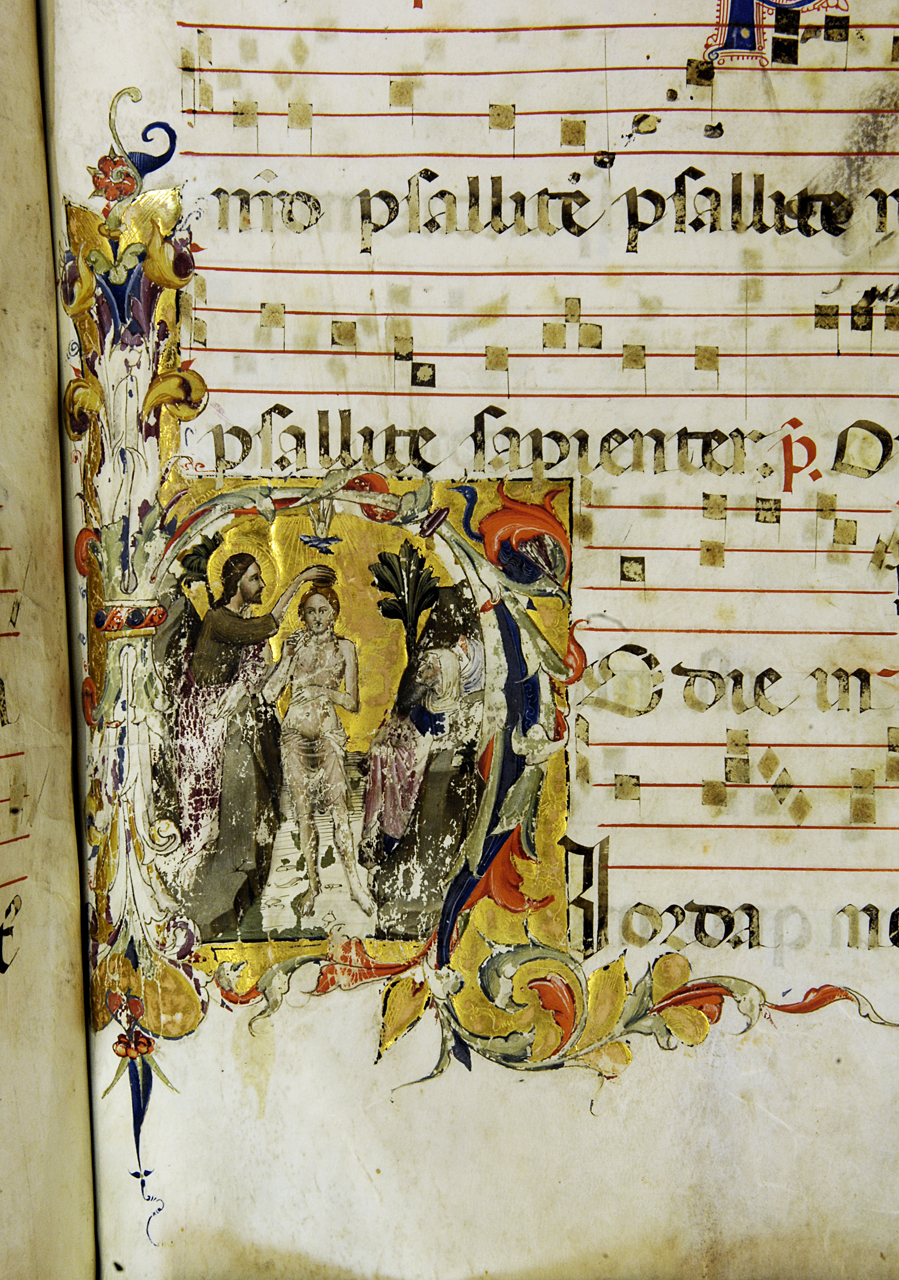 nr̃o psallite psallite n
psallite sapienter. p̃. O
Odie in
Iordane